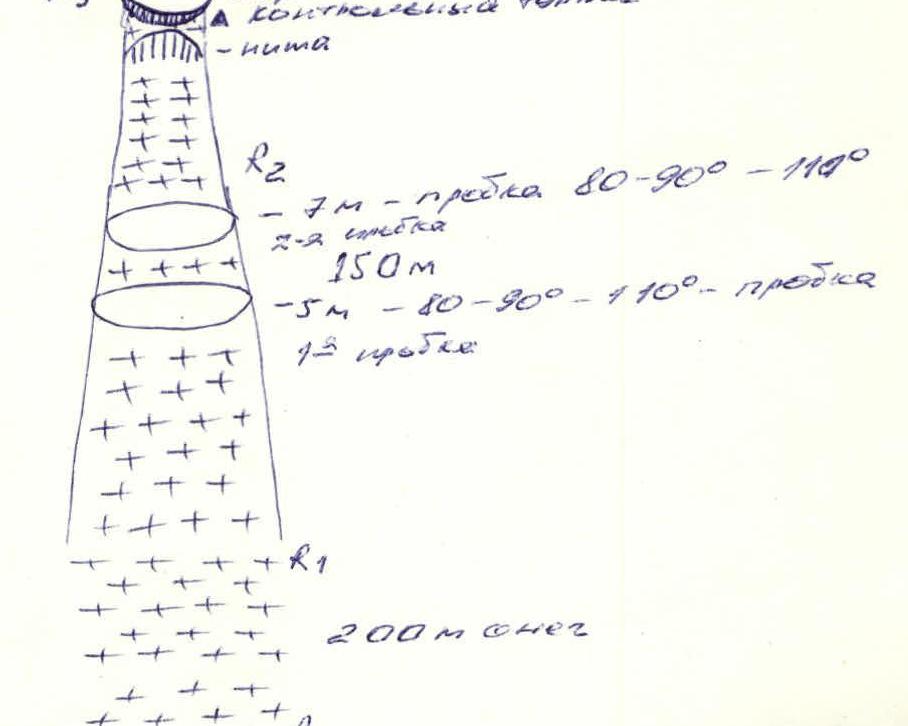 контрольный
- ниша
R2
- 7м - пробка 80-90° - 110°
2-я пробка
150м
-5м - 80-90° - 110° - пробка
1я пробка
R1
200м снег